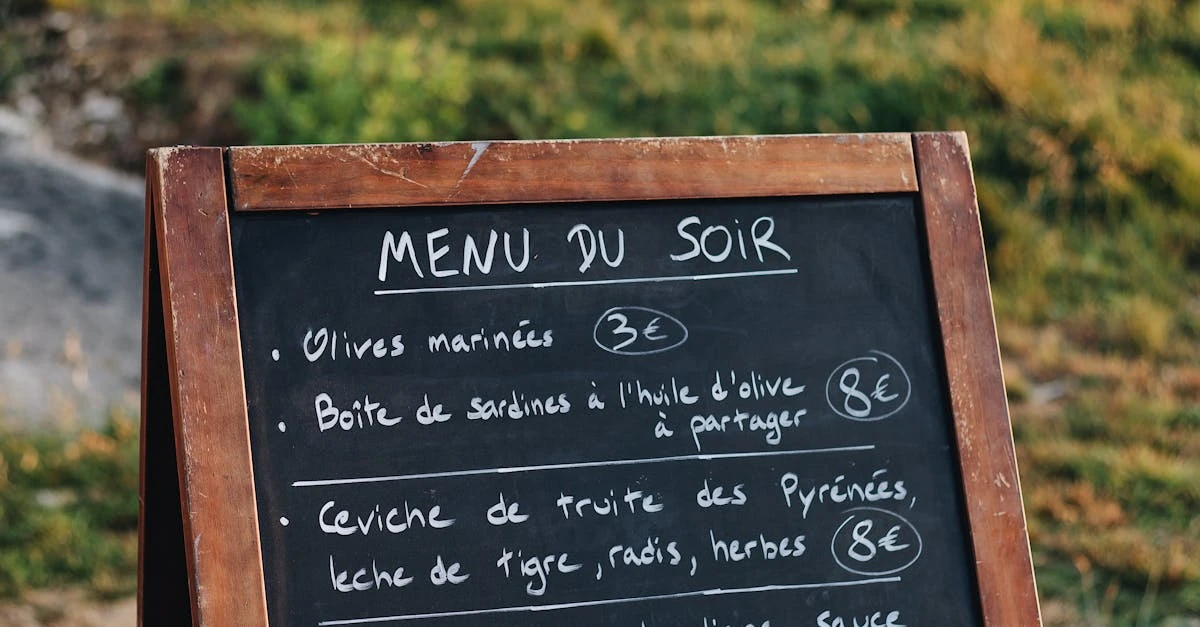 MENU DU SOIR
• Olives marinées 3€
• Boîte de sardines à l'huile d'olive 8€
à partager
• Ceviche de truite des Pyrénées,
leche de tigre, radis, herbes 8€
sauce